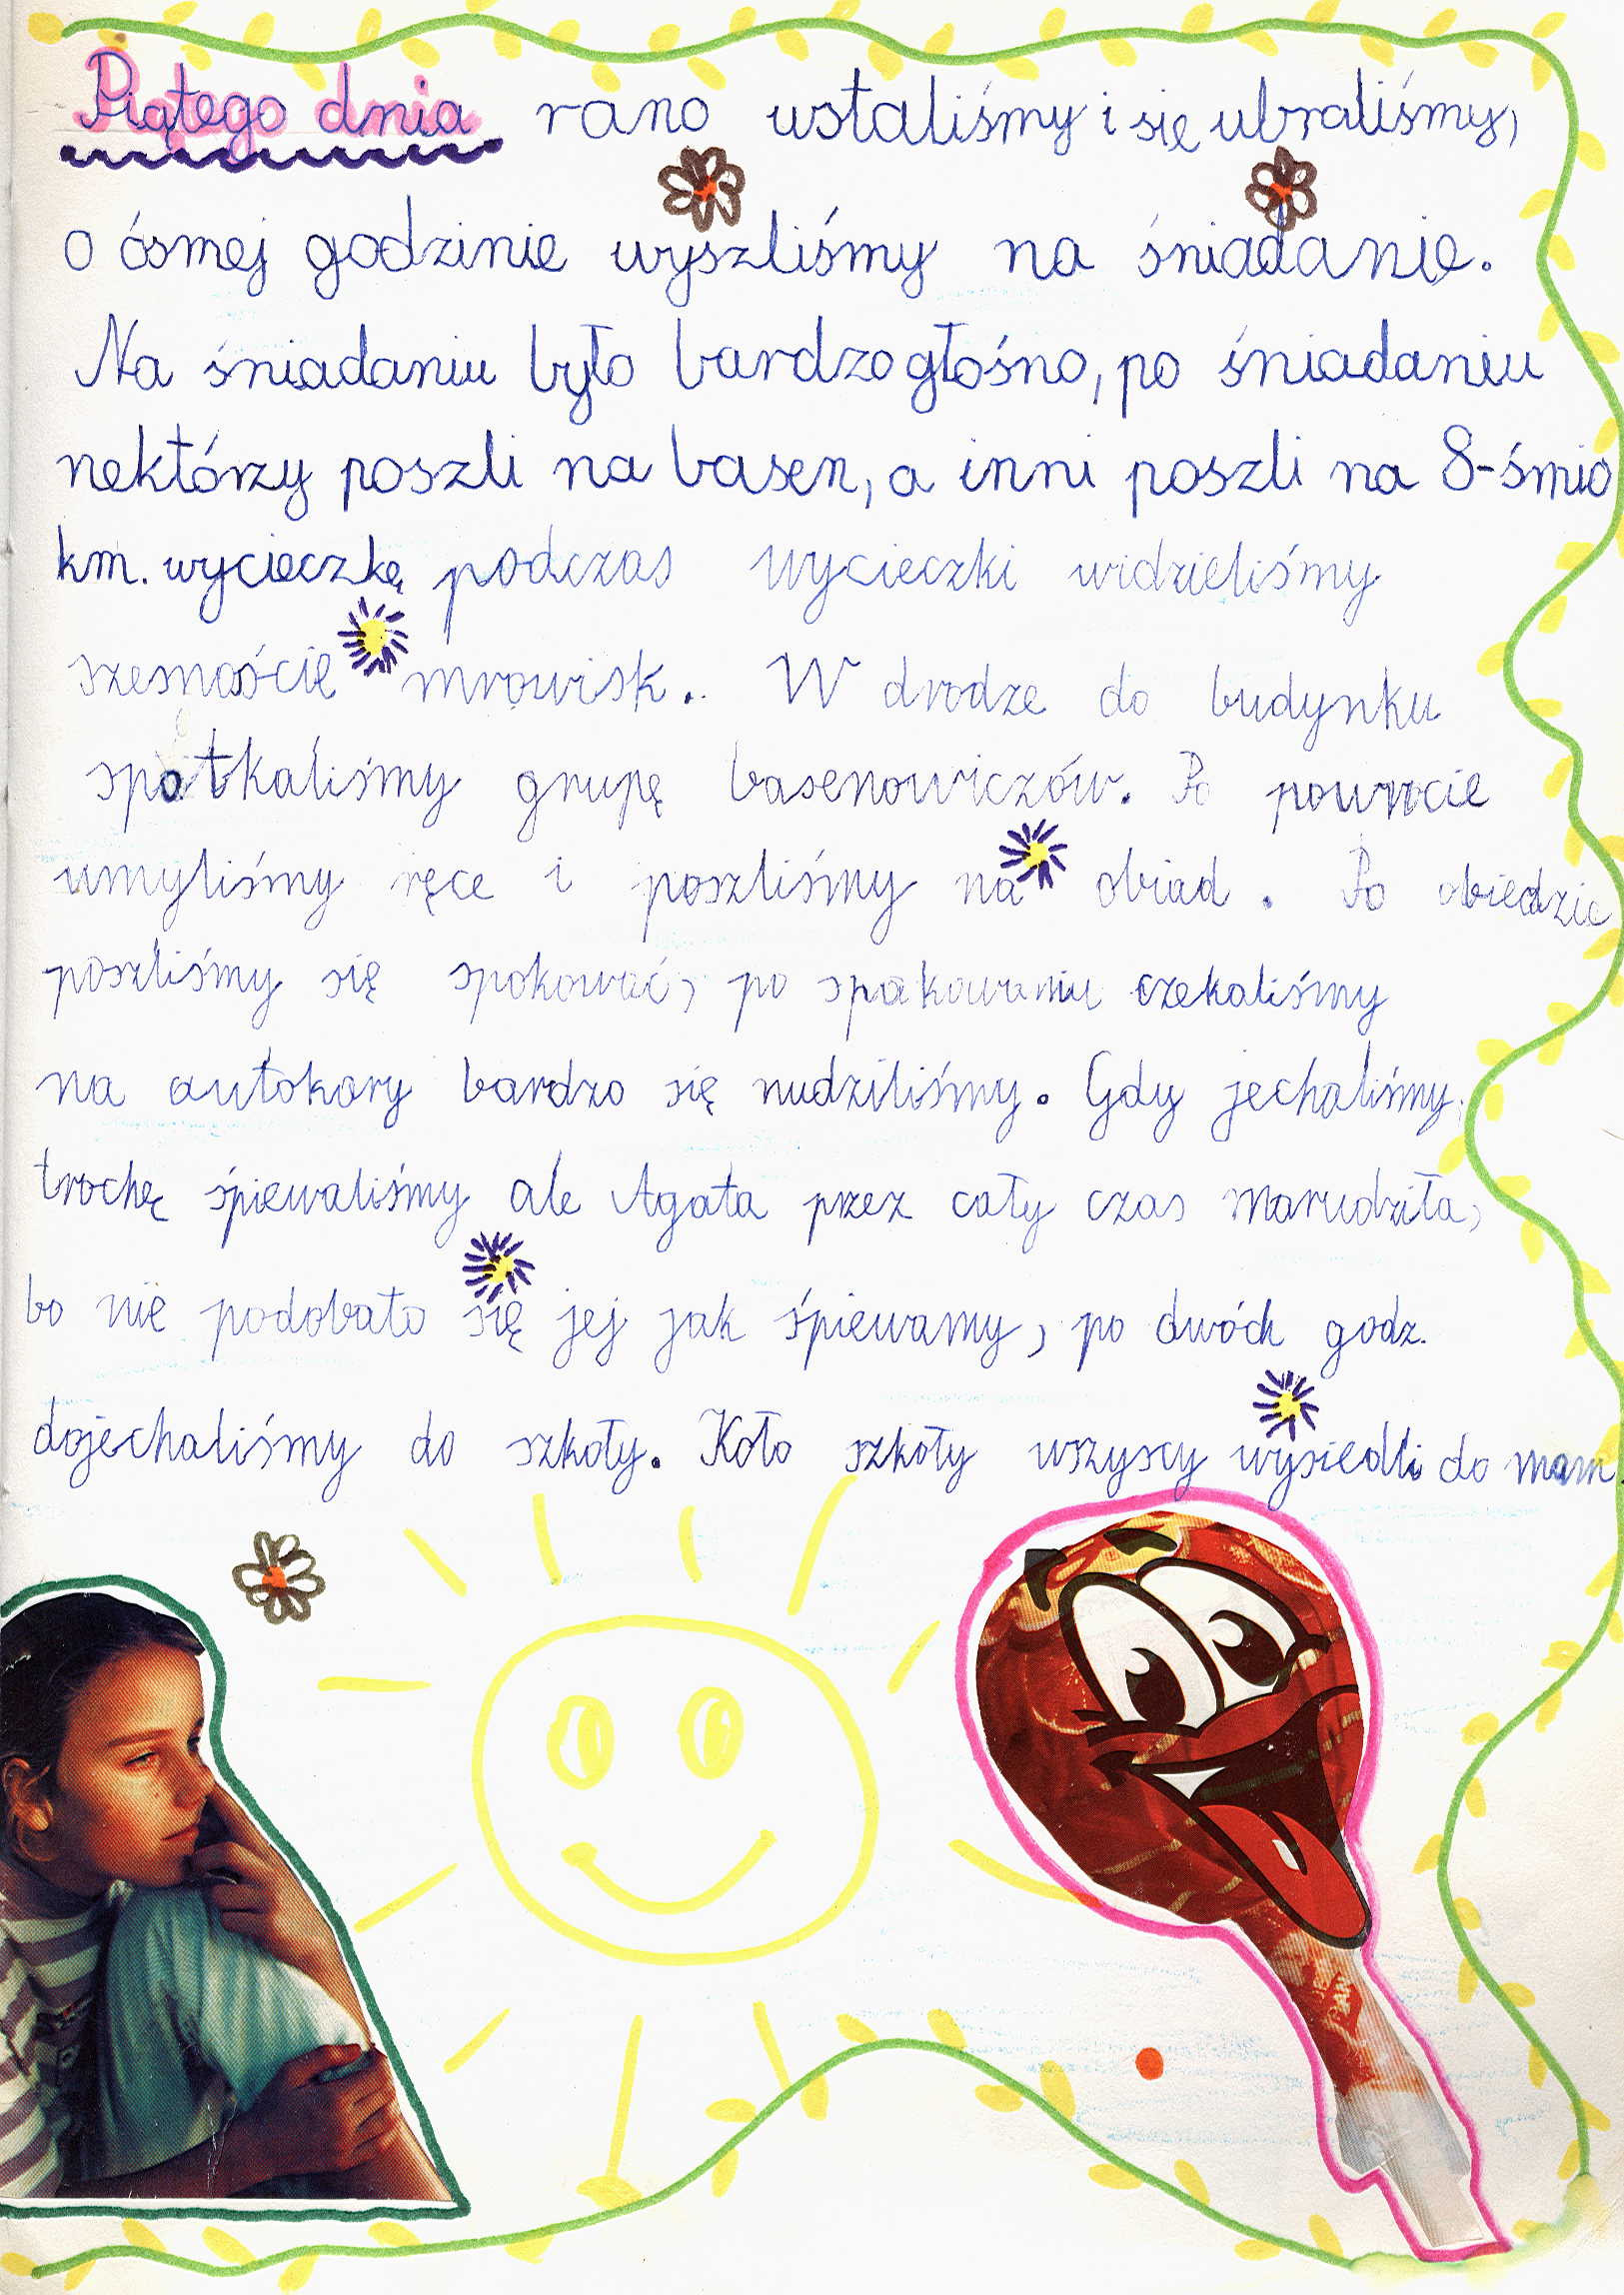 Piątego dnia rano wstaliśmy i się ubraliśmy,
o ósmej godzinie wyszliśmy na śniadanie.
Na śniadaniu było bardzo głośno, po śniadaniu
nektórzy poszli na basen, a inni poszli na 8-śmio
km. wycieczkę podczas wycieczki widzieliśmy
szesnoście mrowisk.. W drodze do budynku
spotkaliśmy grupę basenowiczów. Po powrocie
umyliśmy ręce i poszliśmy na obiad. Po obiedzie
poszliśmy się spokować, po spakowaniu czekaliśmy
na autokary bardzo się nudziliśmy. Gdy jechaliśmy,
trochę śpiewaliśmy ale Agata przez cały czas marudziła,
bo nie podobało się jej jak śpiewamy, po dwóch godz.
dojechaliśmy do szkoły. Koło szkoły wszyscy wysiedli do mam.